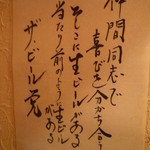 仲間同志で
喜びを分かち合う
そこに生ビールがある
当たり前のように生ビールがある
ザ・ビール党